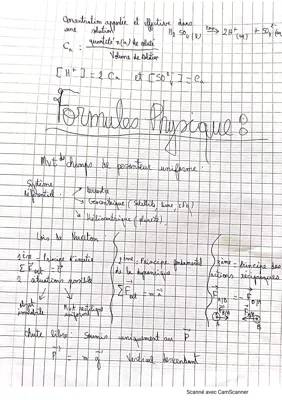 Concentration apportée et effective dans
une solution H₂SO₄ (l) → 2H⁺(aq) + SO₄
Cₐ = quantité n (n) de soluté
Volume de solution
[H⁺] = 2 Cₐ et [SO₄] = Cₐ
Formules Physique :
Mvt champs de pesanteur uniforme.
Système
Référentiel
Terrestre
Géocentrique (Satellite, Lune,
Héliocentrique (planète)
Lois de Newton
1ère - Principe d'inertie
ΣF ext = 0
2 situations possible
objet immobile
Mvt rectiligne uniforme
2ème - Principe fondamental
de la dynamique
ΣF ext = m a
3ème - Principe des
actions réciproques
F A/B = - F B/A
chute libre : Soumis uniquement au P
P = m g Vertical descendant
Scanné avec CamScanner